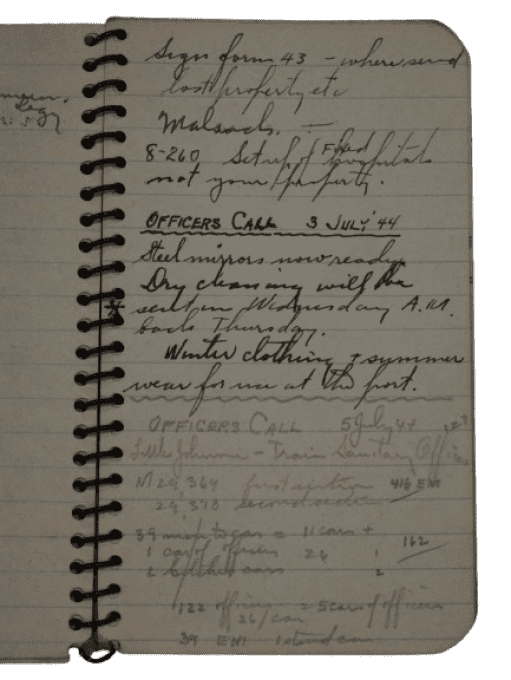 Sign form 43 - where send
lost property etc
8-260 Set up of Field hospitals
not your property.
OFFICERS CALL 3 JULY '44
Steel mirrors now ready.
Dry cleaning will be
* sent in Wednesday A.M.
back Thursday.
Winter clothing + summer
wear for use at the port.
OFFICERS CALL 5 July 44
Little Johnnie - Train Sanitary Officer
M 29,369 first section 416 EM
29,370 second section
39 men to = 11 cars +
1 car of officers 26 1 162
2 kitchen cars 2
122 officers = 5 cars of officers
26/car
39 EM 1 car